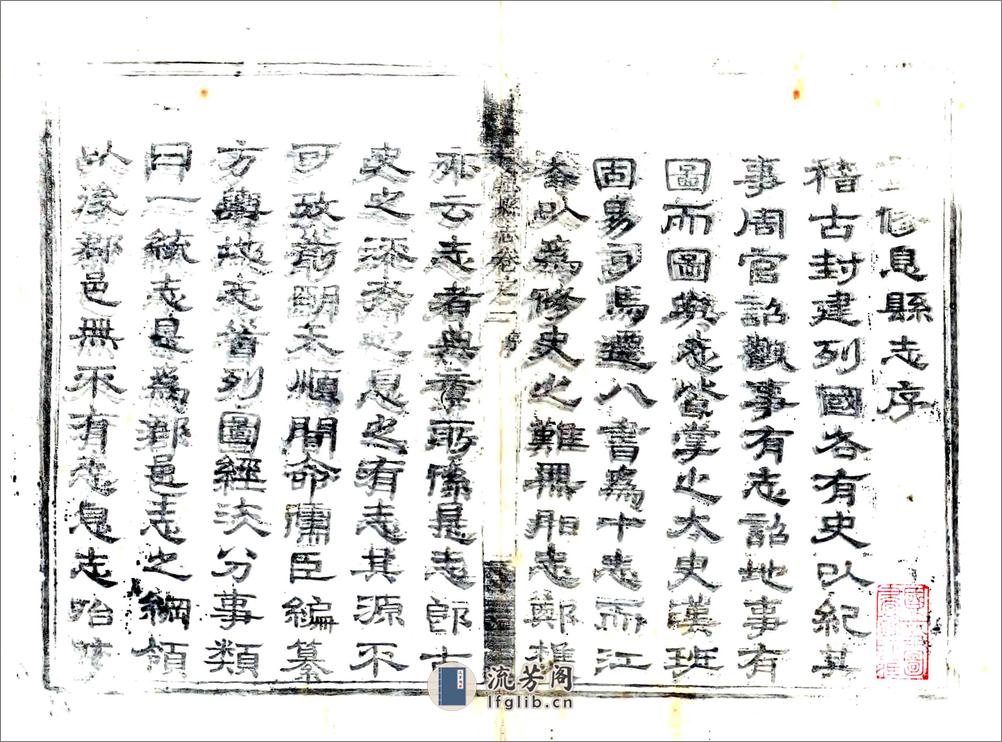 修息縣志序
稽古封建列國各有史以紀其
事周官詔觀事有志詔地事有
圖而圖與志皆掌之太史漢班
固易司馬遷八書為十志而江
淹以為修史之難無出志鄭樵
亦云志者典章所係是志即古
史之流裔也息之有志其源不
可攷前明天順間命儒臣編纂
方輿地志首列圖經次分事類
曰一統志是為郡邑志之綱領
以後郡邑無不有志息志始於
息縣志卷之一 序
流芳阁
lfglib.cn